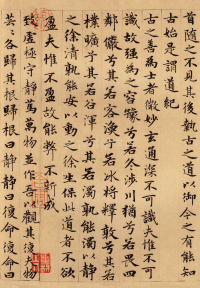 首隨之不見其後執古之道以御今之有能知
古始是謂道紀
古之善為士者微妙玄通深不可識夫惟不可
識故強為之容豫兮若冬涉川猶兮若畏四
鄰儼兮其若容渙兮若冰將釋敦兮其若
樸曠兮其若谷渾兮其若濁孰能濁以靜
之徐清孰能安以動之徐生保此道者不欲
盈夫惟不盈故能弊不新成
致虛極守靜篤萬物並作吾以觀其復夫物
芸芸各歸其根歸根曰靜靜曰復命復命曰